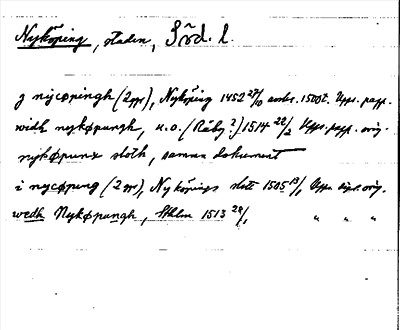 Nyköping, staden, Söd. l.
j nycøpingh (2 ggr), Nyköping 1452 27/10 avskr. 1500t. Upps. papp.
widh nykøpungh, u.o. (Råby?) 1514 22/2 Upps. papp. orig.
nykøpunx sloth, samma dokument
i nycøpung (2 ggr), Nyköpings slott 1505 13/1 Upps. dipl. orig.
wedh Nykøpungh, Sthlm 1513 29/1 " " "